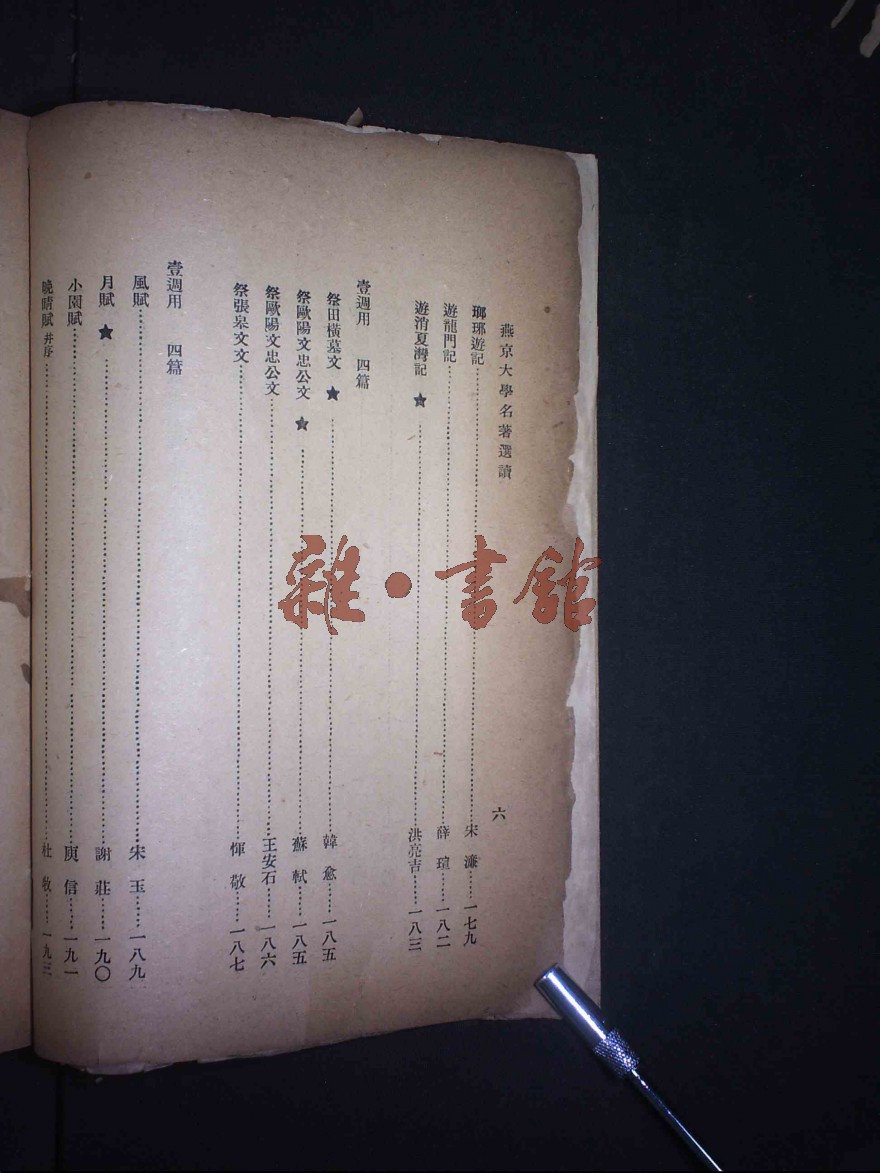 燕京大學名著選讀 六
瑯琊遊記 宋濂 一七九
遊龍門記 薛瑄 一八二
遊消夏灣記 ★ 洪亮吉 一八三
壹週用 四篇
祭田橫墓文 ★ 韓愈 一八五
祭歐陽文忠公文 ★ 蘇軾 一八五
祭歐陽文忠公文 王安石 一八六
祭張皋文文 惲敬 一八七
壹週用 四篇
風賦 宋玉 一八九
月賦 ★ 謝莊 一九〇
小園賦 庾信 一九一
晚晴賦 并序 杜牧 一九三
雜·書館